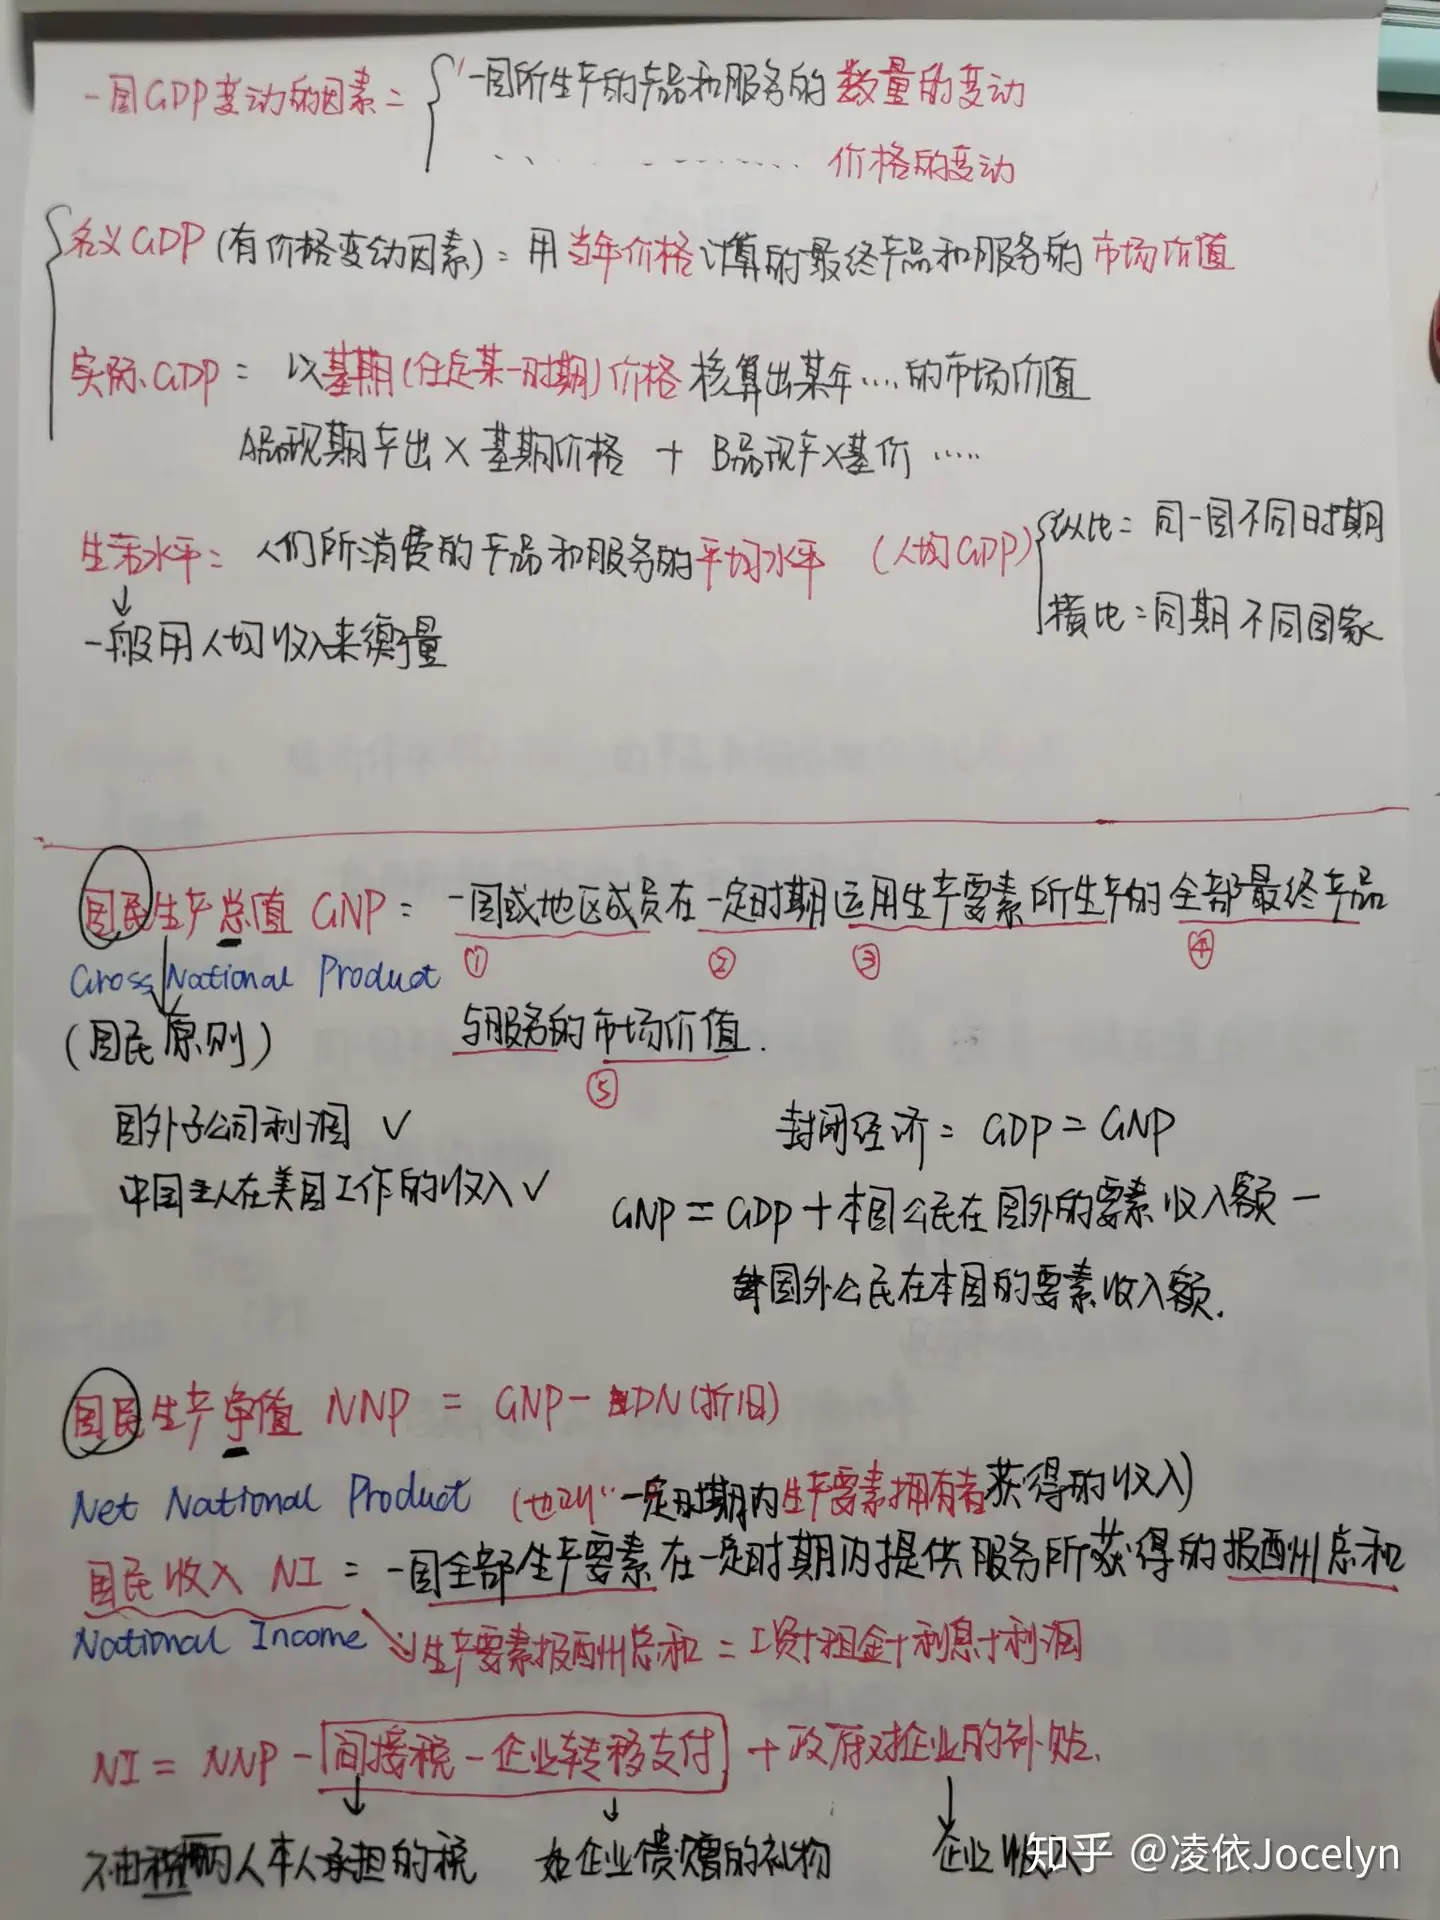 一国GDP变动的因素=
一国所生产的产品和服务的数量的变动
价格的变动
名义GDP(有价格变动因素)=用当年价格计算的最终产品和服务的市场价值
实际GDP= 以基期(任定某一时期)价格核算出某年....的市场价值
A品现期产出×基期价格 + B品现产×基价.....
生活水平=人们所消费的产品和服务的平均水平 (人均GDP)
纵比=同一国不同时期
横比=同期不同国家
一般用人均收入来衡量
国民生产总值 GNP=一国或地区成员在一定时期运用生产要素所生产的全部最终产品
① ② ③ ④
Gross National Product
与服务的市场价值.
(国民原则)
⑤
国外子公司利润 ✓
封闭经济= GDP=GNP
中国人在美国工作的收入✓
GNP=GDP+本国公民在国外的要素收入额-
国外公民在本国的要素收入额.
国民生产净值 NNP = GNP-DN(折旧)
Net National Product (也叫“一定时期内生产要素拥有者获得的收入)
国民收入 NI=一国全部生产要素在一定时期内提供服务所获得的报酬州总和
National Income
生产要素报酬州总和=工资+租金+利息+利润
NI= NNP-间接税-企业转移支付+政府对企业的补贴.
不由纳人本人承担的税 如企业馈赠的礼物 企业收入
知乎 @凌依Jocelyn